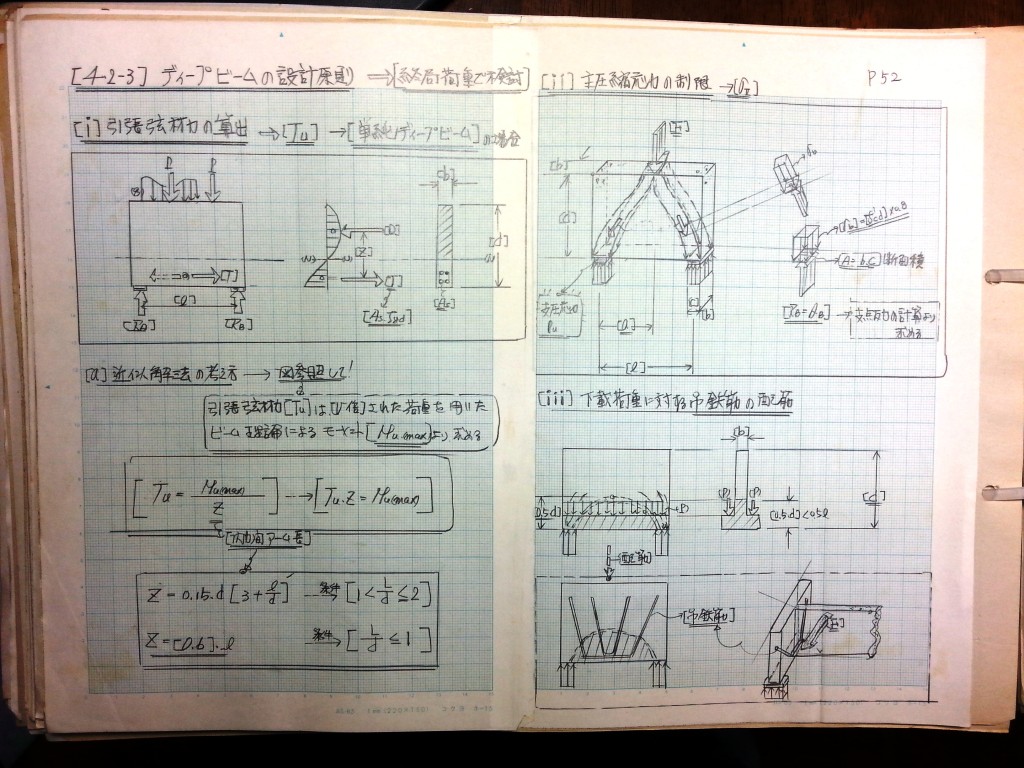 [4-2-3] ディープビームの設計原則 ⟹ [終局荷重で検討]
[i] 引張弦材力の算出 → [Tu] → [単純ディープビーム]の場合
P
P
[T]
[l]
[RA]
[RB]
[Z]
[T]
[As]
[b]
[d]
[a] 近似解法の考え方 → 図参照して!
引張弦材力[Tu]は[U値]された荷重を用いた
ビーム理論によるモーメント[Mu(max)]より求める
[Tu = Mu(max) / Z] → [Tu・Z = Mu(max)]
[内応力間アーム長]
Z = 0.15・d [3 + l/d] 条件→ [1 < l/d ≦ 2]
Z = [0.6]・l 条件→ [l/d ≦ 1]
[ii] 主圧縮応力の制限
P52
[F]
[b]
[d]
[A = b・c] 断面積
支点反力の計算より
求める
支圧応力
[a]
[c]
[b]
[l]
[iii] 下載荷重に対する吊鉄筋の配筋
[b]
[0.5d]
(P)
(P)
[0.5d] < 0.5l
[d]
[配筋]
[吊鉄筋]
[F]